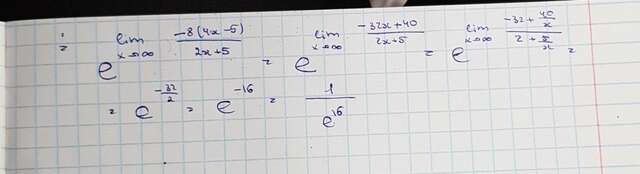 = e^{lim_{x→∞} \frac{-8(4x-5)}{2x+5}} = e^{lim_{x→∞} \frac{-32x+40}{2x+5}} = e^{lim_{x→∞} \frac{-32+\frac{40}{x}}{2+\frac{5}{x}}} =
= e^{-\frac{32}{2}} = e^{-16} = \frac{1}{e^{16}}